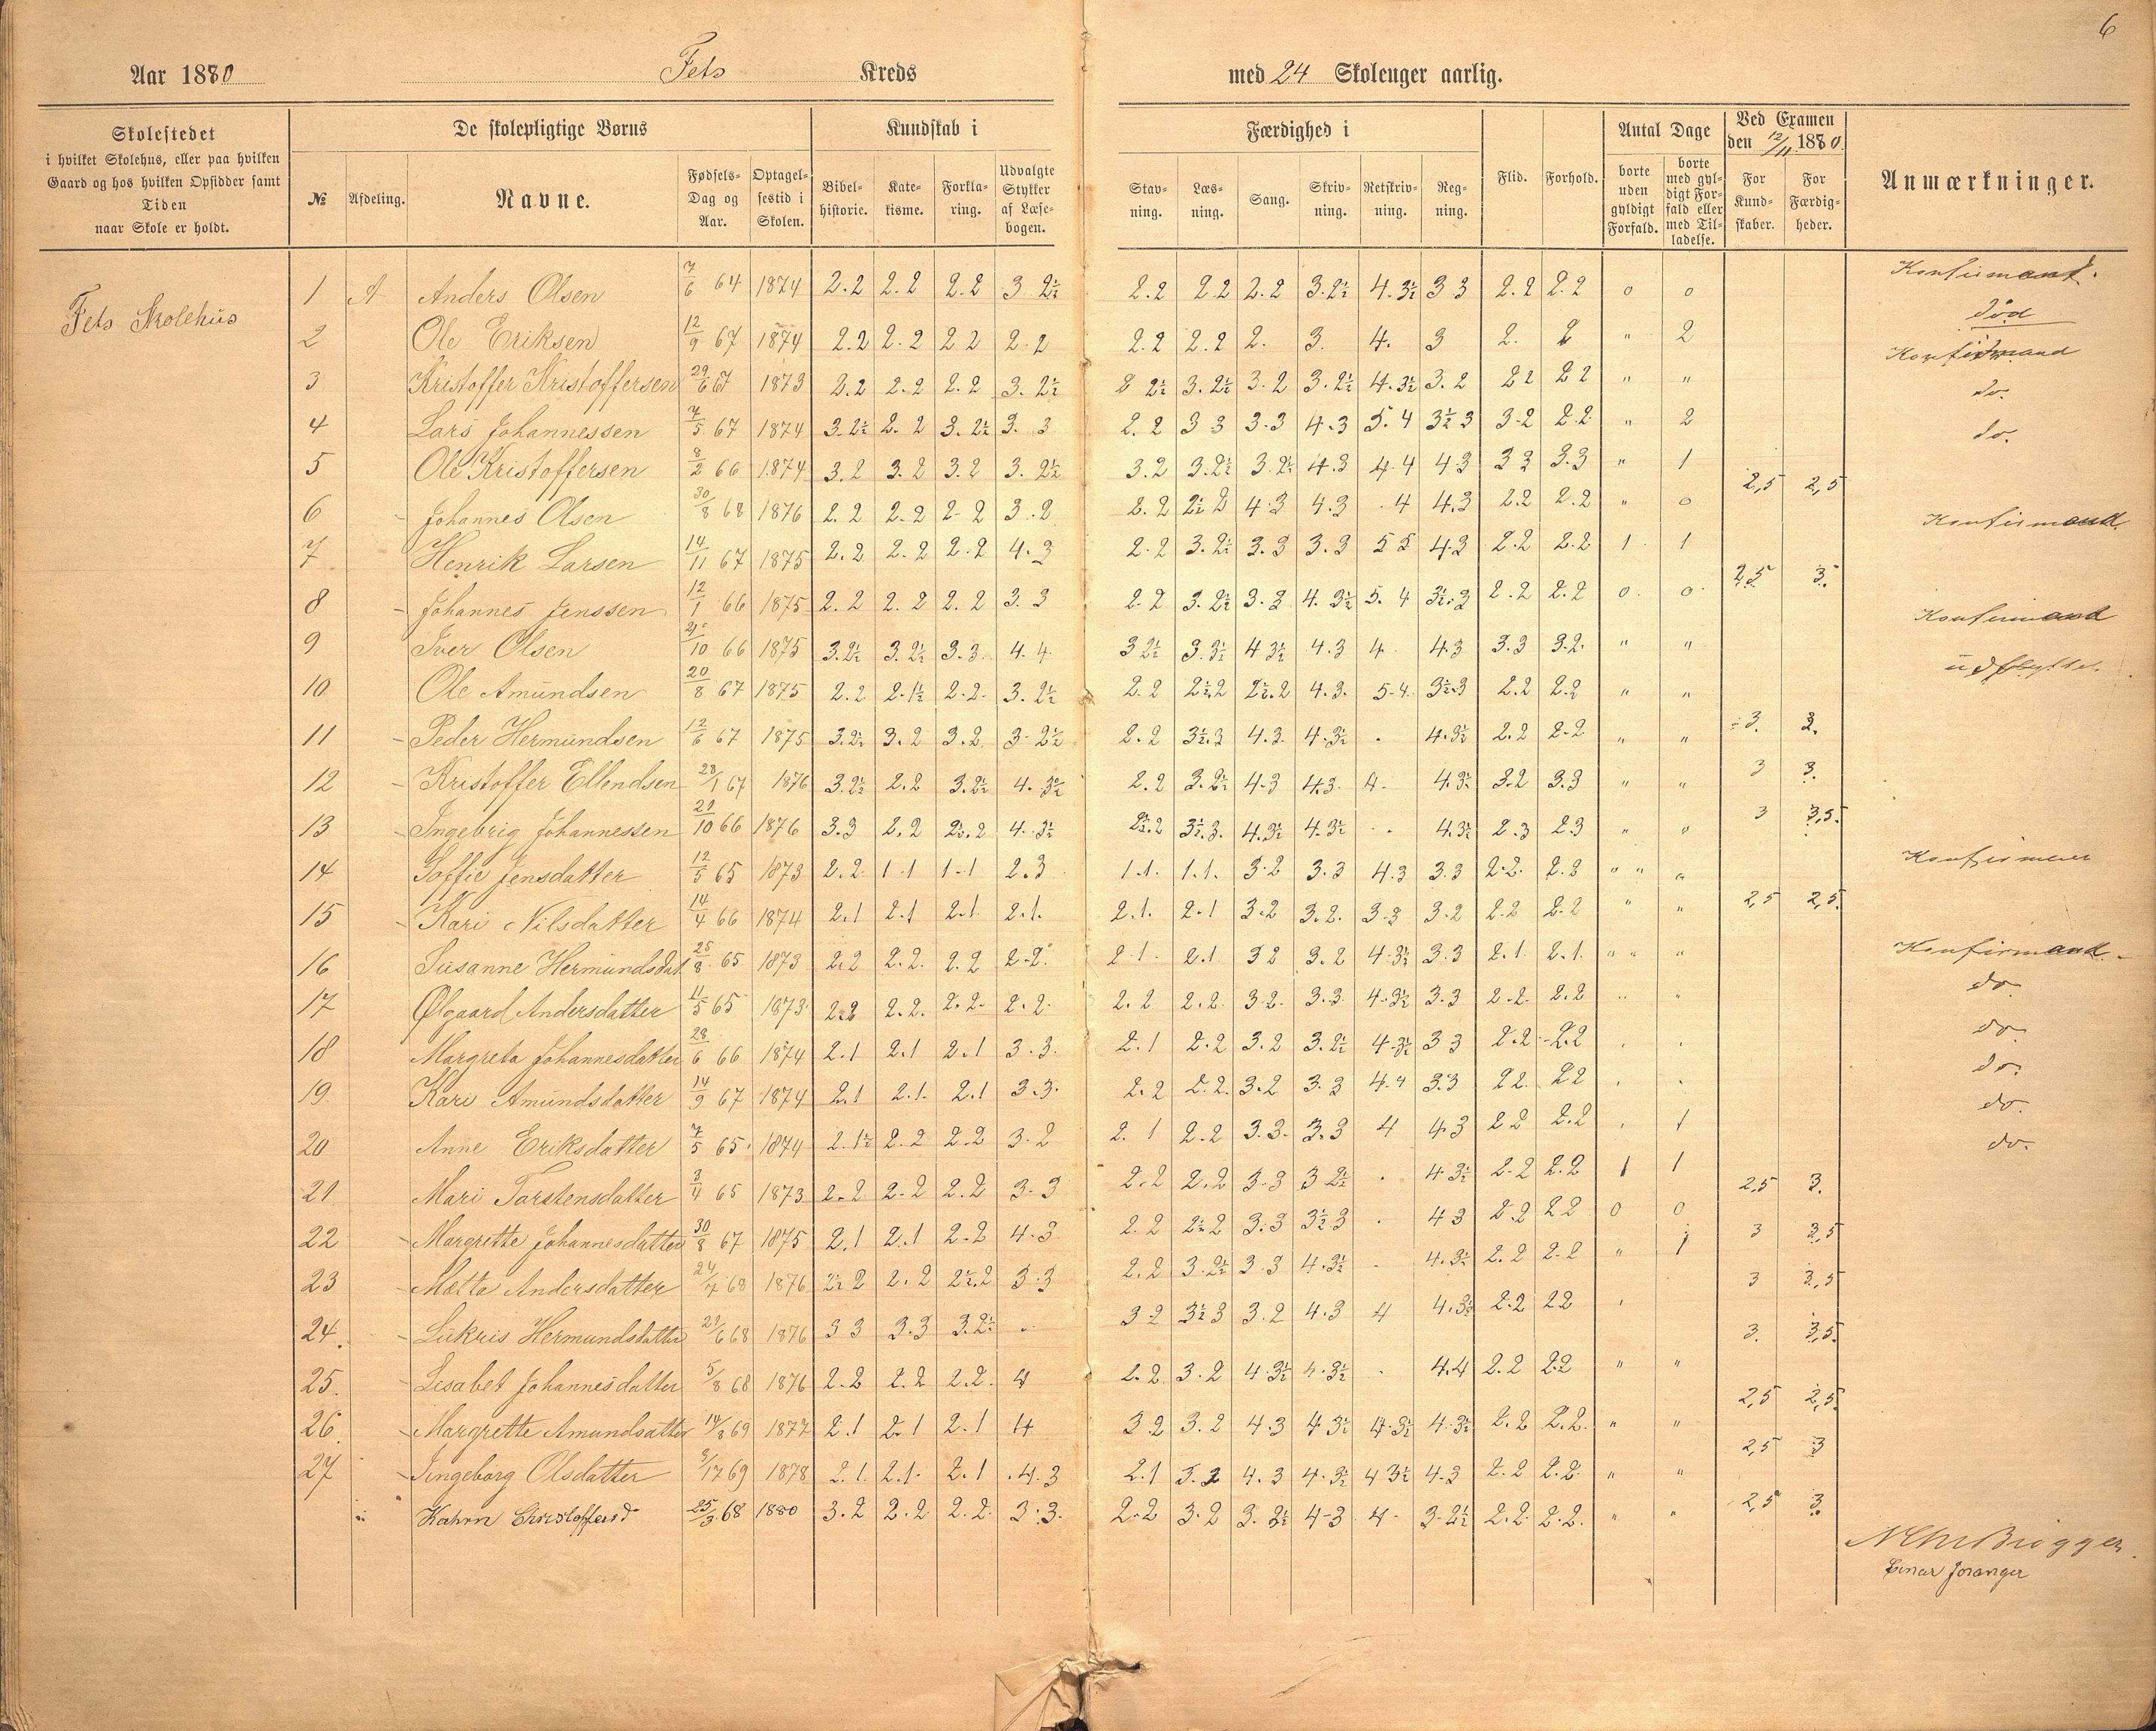 6
Aar 1880 Fets Kreds med 24 Skoleuger aarlig.
Skolestedet
i hvilket Skolehus, eller paa hvilken
Gaard og hos hvilken Opsidder samt
Tiden
naar Skole er holdt.
De skolepligtige Børns
№ Afdeling. Navne. Fødsels-Dag og Aar. Optagelsestid i Skolen.
Kundskab i
Bibelhistorie. Katekisme. Forklaring. Udvalgte Stykker af Læsebogen.
Færdighed i
Stavning. Læsning. Sang. Skrivning. Retskrivning. Regning.
Flid. Forhold.
Antal Dage
borte uden gyldigt Forfald. borte med gyldigt Forfald eller med Tilladelse.
Ved Examen den 12/11 1880.
For Kundskaber. For Færdigheder.
Anmærkninger.
Fets Skolehus
1 A Anders Olsen 7/6 64 1874 2.2 2.2 2.2 3 2½ 2.2 2.2 2.2 3.2½ 4.3½ 3 3 2.2 2.2 0 0 Konfirmant.
2 Ole Eriksen 12/9 67 1874 2.2 2.2 2 2 2.2 2.2 2.2 2. 3. 4. 3 2. 2 " 2 död
3 Kristoffer Kristoffersen 29/6 67 1873 2.2 2.2 2.2 3.2½ 2 2½ 3.2½ 3.2 3.2½ 4.3½ 3.2 2 2 2 2 " " Konfirmand
4 Lars Johannessen 7/5 67 1874 3.2½ 2.2 3.2½ 3. 3 2.2 3 3 3.3 4.3 5.4 3½ 3 3-2 2.2 " 2 do.
5 Ole Kristoffersen 8/2 66 1874 3.2 3.2 3.2 3.2½ 3.2 3.2½ 3 2½ 4.3 4.4 4.3 3 3 3.3 " 1 do.
6 - Johannes Olsen 30/8 68 1876 2.2 2.2 2-2 3.2 2.2 2½ 2 4 3 4.3 . 4 4.3 2.2 2.2 " 0 2,5 2,5
7 Henrik Larsen 14/11 67 1875 2.2 2.2 2.2 4.3 2.2 3.2½ 3.3 3.3 5 5 4.3 2.2 2.2 1 1 Konfirmand
8 - Johannes Jenssen 12/1 66 1875 2.2 2.2 2.2 3.3 2 2 3.2½ 3.3 4.3½ 5.4 3½.3 2.2 2.2 0 0 2,5 3.
9 Iver Olsen /10 66 1875 3.2½ 3.2½ 3.3 4.4 3 2½ 3.3½ 4 3½ 4.3 4 4.3 3.3 3.2. " " Konfirmand
10 Ole Amundsen 20/8 67 1875 2.2 2.1½ 2.2. 3.2½ 2.2 2½.2 2½.2 4.3. 5.4. 3½.3 2.2 2.2 " " udflyttet.
11 - Peder Hermundsen 12/6 67 1875 3.2½ 3.2 3.2 3-2½ 2.2 3½.3 4.3. 4.3½ . 4.3½ 2.2 2.2 " " 3. 3.
12 - Kristoffer Ellendsen 28/1 67 1876 3.2½ 2.2 3.2½ 4.3½ 2.2 3.2½ 4.3 4.3 4. 4.3½ 3.2 3.3 " " 3 3.
13 - Ingebrig Johannessen 29/10 66 1876 3.3 2.2 2½.2 4.3½ 2½.2 3½.3. 4.3½ 4.3½ . 4.3½ 2.3 2.3 " 0 3 3,5.
14 - Soffie Jensdatter 12/5 65 1873 2.2 1 1 1-1 2.3 1.1. 1.1. 3.2 3.3 4.3 3.3 2.2. 2.2 " " "
15 - Kari Nilsdatter 14/4 66 1874 2.1 2.1 2.1 2.1. 2.1. 2.1 3.2 3.2. 3-3 3.2 2.2 2.2 " " 2,5 2,5.
16 - Susanne Hermundsdat 25/8 65 1873 2.2 2.2. 2.2 2-2. 2 1. 2.1 3 2 3.2 4.3½ 3.3 2.1. 2.1. " " Konfirmand.
17 Ølgaard Andersdatter 11/5 65 1873 2.2 2.2. 2.2. 2.2. 2.2 2.2 3.2. 3.3. 4.3½ 3.3 2.2. 2.2 " " do
18 Margreta Johannesdatter 28/6 66 1874 2.1 2.1 2.1 3.3. 2.1 2.2 3.2 3.2½ 4.3½ 3 3 2.2 2.2 do.
19 Kari Amundsdatter 14/9 67 1874 2.1 2.1. 2.1 3.3. 2.2 2.2. 3.2 3.3 4.4 3.3 2 2 2 2 do.
20 Anne Eriksdatter 7/5 65 1874 2.1½ 2.2 2.2 3.2 2. 1 2.2 3.3. 3.3 4 4.3 2 2 2.2 . 1 do.
21 Mari Torstensdatter 3/4 65 1873 2.2 2-2 2.2 3-3 2.2 2.2 3.3 3 2½ . 4.3½ 2.2 2.2 1 1 do.
22 - Margrette Johannesdatter 30/8 67 1875 2.1 2.1 2.2 4.3 2.2 2½ 2 3.3 3½ 3 . 4 3 2.2 2 2 0 0 2,5 3.
23 - Mætta Andersdatter 24/4 68 1876 2½ 2 2.2 2½.2 3.3 2.2 3.2½ 3.3 4.3½ . 4.3½ 2.2 2.2 " 1 3 3,5
24. - Lukris Hermundsdatter 29/6 68 1876 3 3 3.3 3.2½ 3 2 3½ 3 3.2 4.3 4 4.3½ 2.2 2 2 3 3,5
25. - Lisabet Johannesdatter 5/8 68 1876 2.2 2.2 2.2. 4 2.2 3.2 4 3½ 4.3½ . 4.4 2.2 2.2 " " 3. 3,5.
26. - Margrette Amundsatter 14/3 69 1877 2.1 2.1 2.1 4 3.2 3.2 4.3 4 3½ 4.3½ 4.3½ 2.2 2.2. " " 2,5 2,5.
27 - Ingeborg Olsdatter 69 1878 2.1. 2.1. 2.1 .4.3 2.1 3.2 4.3 4.3½ 4 3½ 4.3 2.2 2.2 " " 2,5 3
" Katrin Christoffersd 25/3 68 1880 3.2 2.2 2.2. 3.3. 2.2 3.2 3.3½ 4-3 4. 3-2½ 2.2. 2.2. " " 2,5 3.
Brøgger.
Einar Joranger